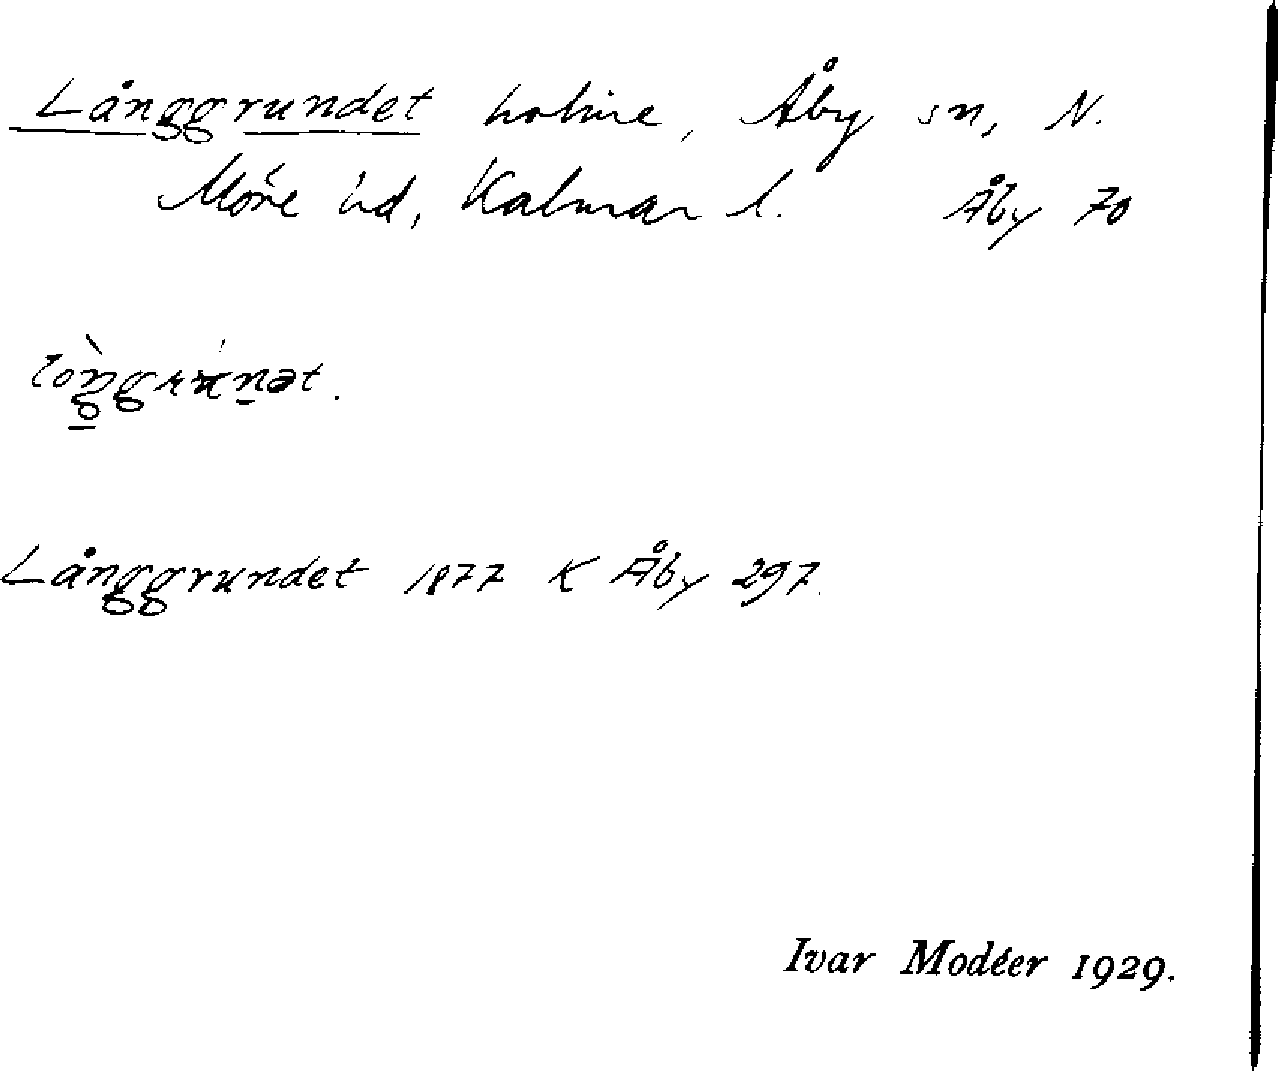 Långgrundet holme, Åby sn, N.
Möre hd, Kalmar l. Åby 70
Långgrundet 1877 K Åby 297.
Ivar Modéer 1929.